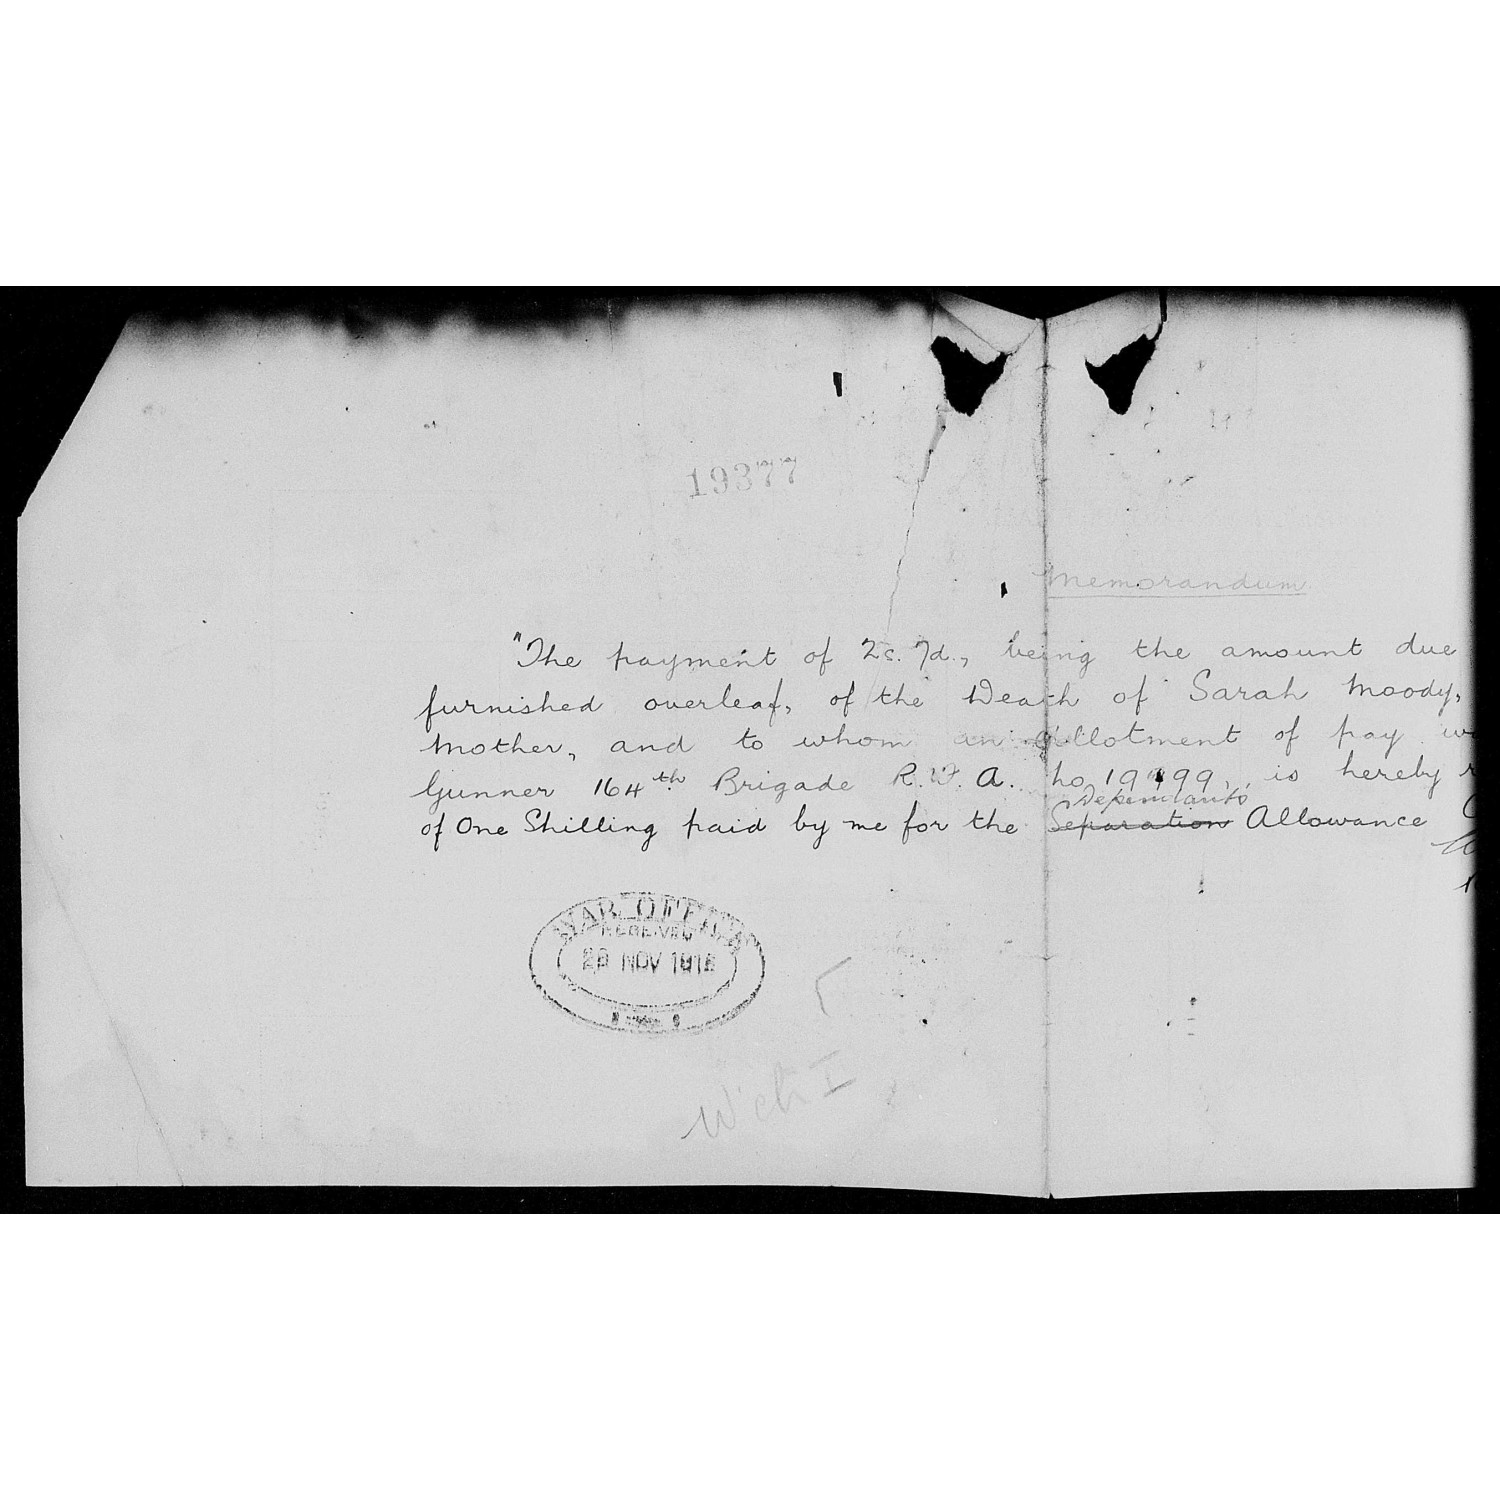 19377
Memorandum
"The payment of 2s. 7d., being the amount due
furnished overleaf, of the Death of Sarah Moody,
Mother, and to whom an allotment of pay
Gunner 164th Brigade R.F.A. No is hereby
Dependant's
of One Shilling paid by me for the Separation Allowance
WAR OFFICE
RECEIVED
NOV